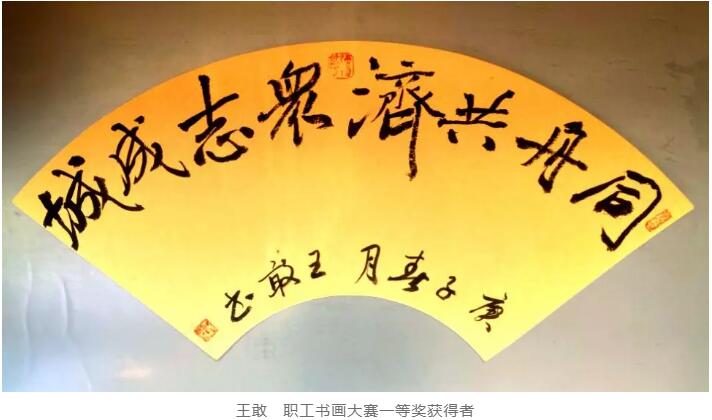 同舟共濟眾志成城
庚子春月 王敢书
王敢　职工书画大赛一等奖获得者